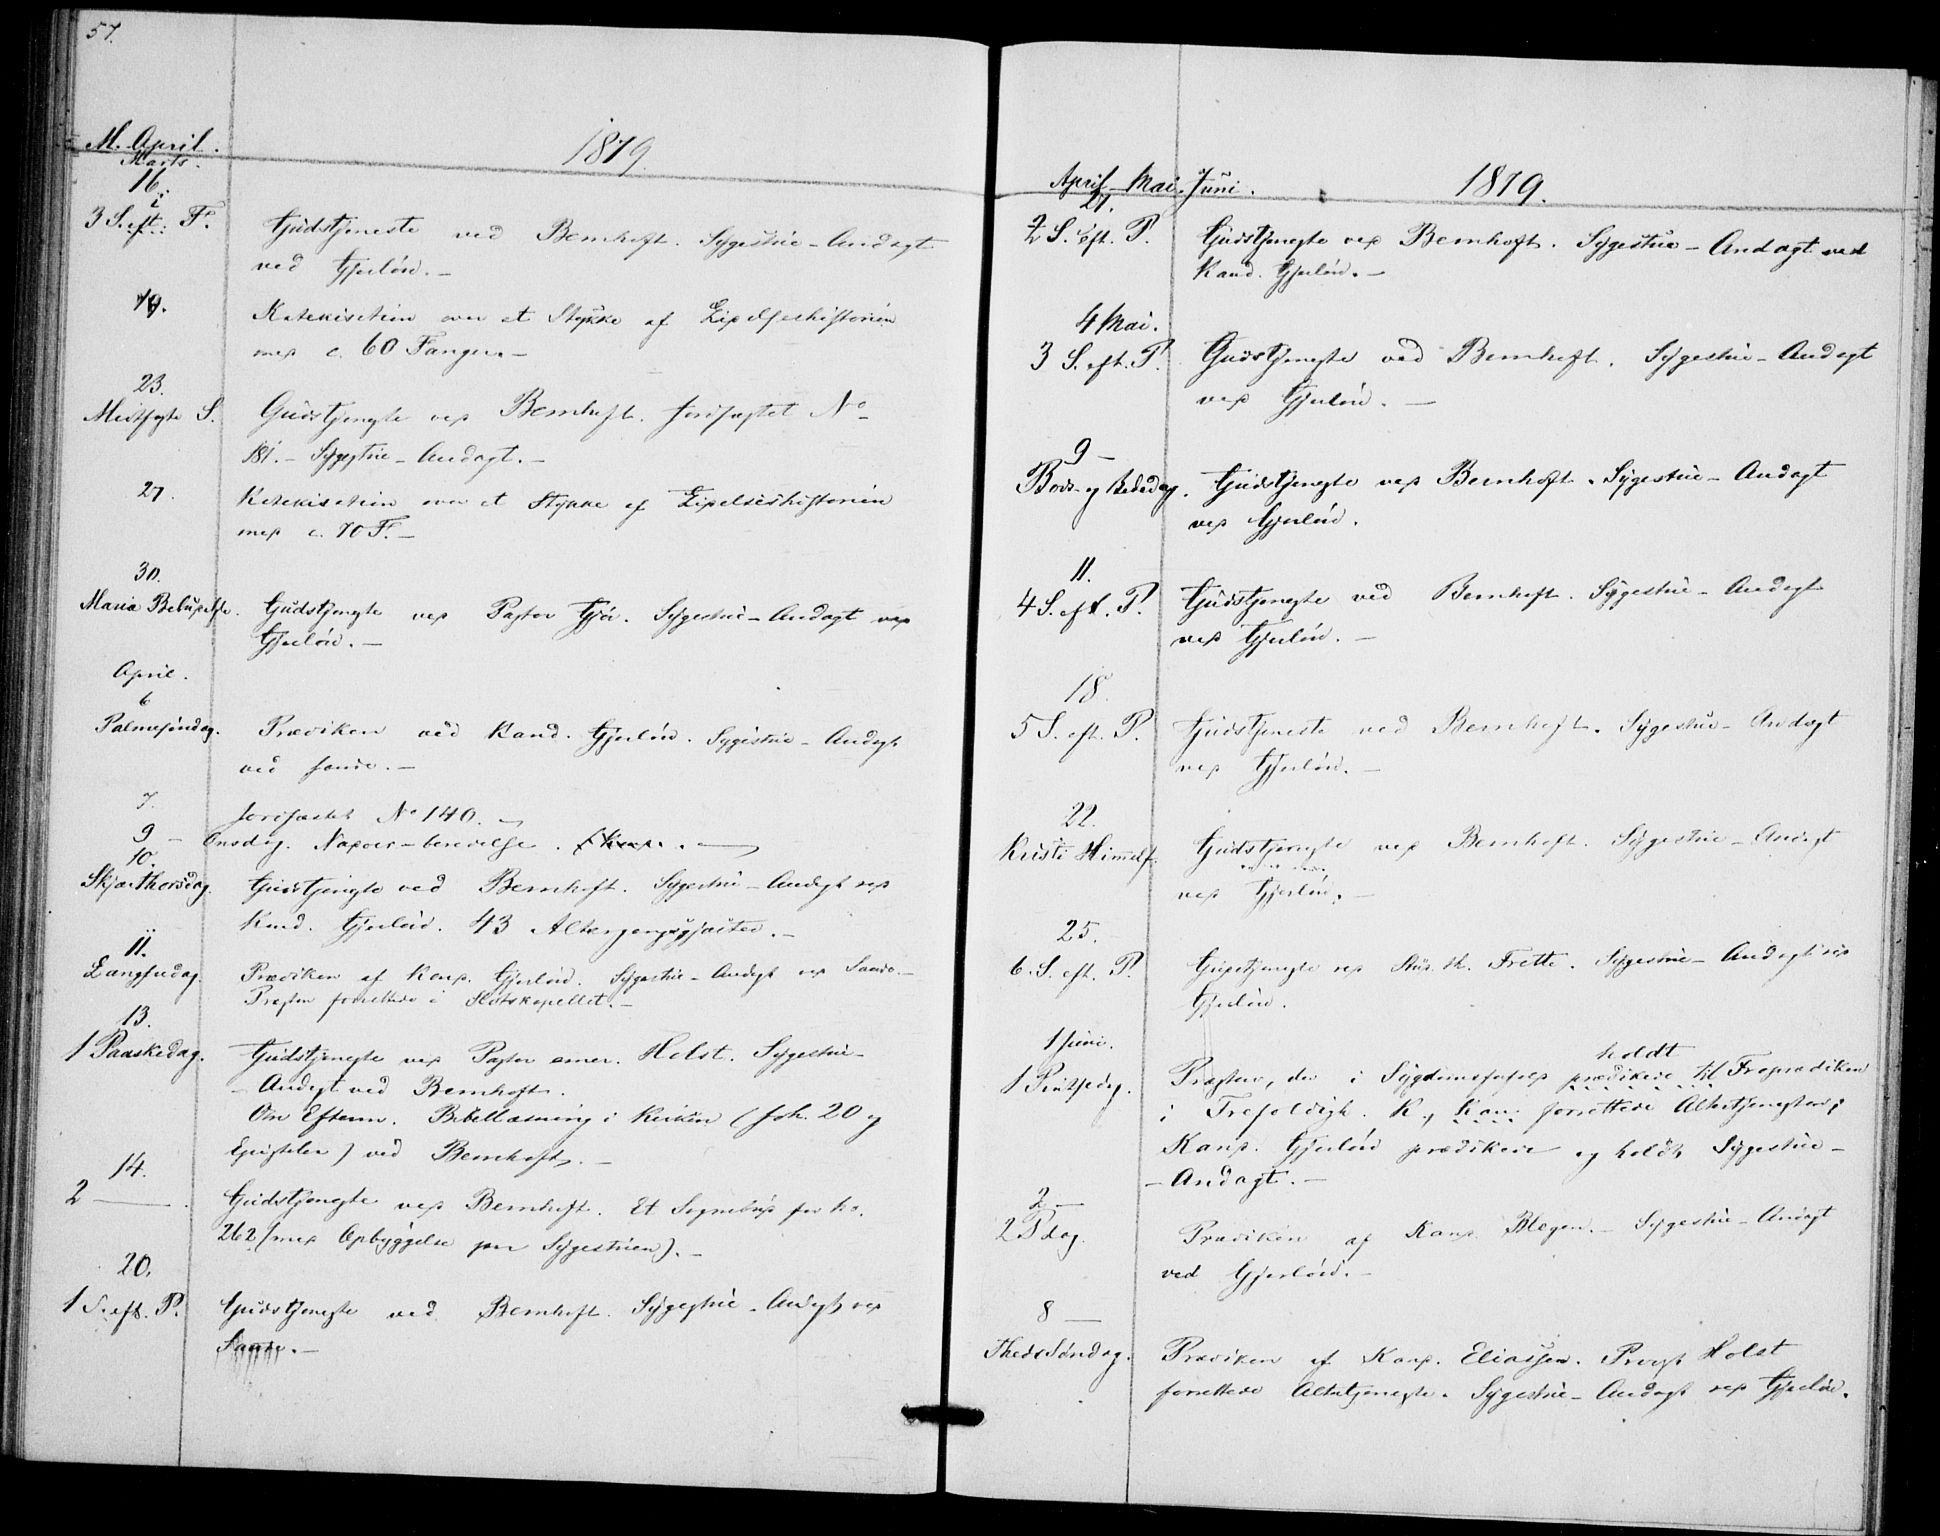 57.
M. April.
Marts.
1879.
16.
3 S. eft. F.
Gudstjeneste ved Bernhoft. Sygestue-Andagt
ved Gjerløv. -
19.
Katekisation over et Stykke af Lidelseshistorien
med c. 60 Fanger. -
23.
Midfaste S.
Gudstjeneste ved Bernhoft. Jordfæstet No
181. - Sygestue-Andagt. -
27.
Katekisation over et Stykke af Lidelseshistorien
med c. 70 F. -
30.
Maria Bebudelse.
Gudstjeneste ved Pastor Gjør. Sygestue-Andagt ved
Gjerløv. -
April.
6
Palmesøndag.
Prædiken ved Kand. Gjerløv. Sygestue-Andagt
ved Sande. -
7.
Jordfæstet No 140. -
9 - Onsdag. Nadver-beredelse.
10.
Skjærthorsdag.
Gudstjeneste ved Bernhoft. Sygestue-Andagt ved
Kand. Gjerløv. 43 Altergangsgjæster. -
11.
Langfredag.
Prædiken af Kand. Gjerløv. Sygestue-Andagt ved Sande. -
Præsten forrettede i Slotskapellet. -
13.
1 Paaskedag.
Gudstjeneste ved Pastor emer. Holst. Sygestue-
- Andagt ved Bernhoft.
Om Efterm. Bibellæsning i Kirken (Joh. 20 og
Epistelen) ved Bernhoft. -
14.
2 -
Gudstjeneste ved Bernhoft. Et Sognebud for No.
262 (med Opbyggelse paa Sygestuen). -
20.
1 S. eft. P.
Gudstjeneste ved Bernhoft. Sygestue-Andagt ved
Sande. -
April - Mai. Juni.
1879.
27.
2 S. eft. P.
Gudstjeneste ved Bernhoft. Sygestue-Andagt ved
Kand. Gjerløv. -
4 Mai.
3 S. eft. P.
Gudstjeneste ved Bernhoft. Sygestue-Andagt
ved Gjerløv. -
9 -
Bods- og Bededag.
Gudstjeneste ved Bernhoft. Sygestue-Andagt
ved Gjerløv.
11.
4 S. eft. P.
Gudstjeneste ved Bernhoft. Sygestue-Andagt
ved Gjerløv. -
18.
5 S. eft. P.
Gudstjeneste ved Bernhoft. Sygestue-Andagt
ved Gjerløv. -
22.
Kristi Himmelf.
Gudstjeneste ved Bernhoft. Sygestue-Andagt
ved Gjerløv. -
25.
6. S. eft. P.
Gudstjeneste ved Stud. th. Frette. Sygestue-Andagt ved
Gjerløv.
1 Juni.
1 Pintsedag.
holdt
Præsten, der i Sygdomsforfald prædikede til Froprædiken
i Trefoldigh. K., forrettede Altertjenesten;
Kand. Gjerløv prædikede og holdt Sygestue-
- Andagt. -
2 -
2 P dag.
Prædiken af Kand. Blegen. - Sygestue-Andagt
ved Gjerløv. -
8 -
Tref. Søndag.
Prædiken af Kand. Eliassen. Provst Holst
forrettede Altertjeneste. Sygestue-Andagt ved Gjerløv.